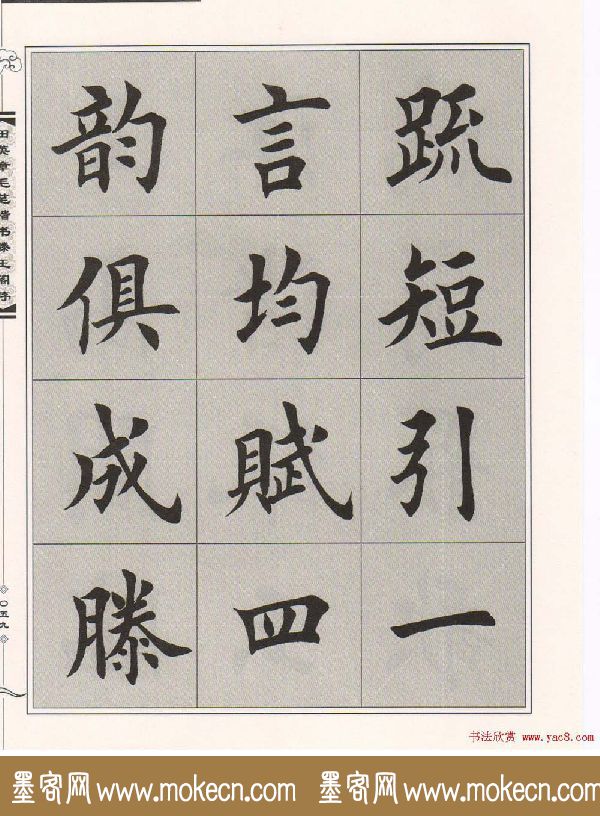 疏短引一
言均賦四
韵俱成滕
田英章毛笔楷书滕王阁序
〇五九
书法欣赏 www.yac8.com
墨客网 www.mokecn.com 墨客网 www.mokecn.com